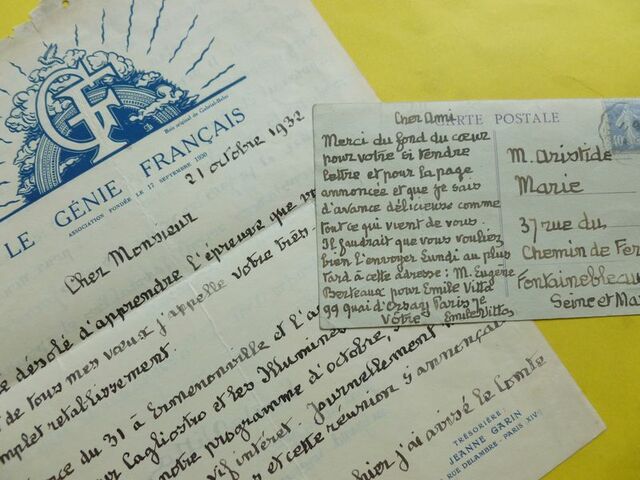 GF
Bois original de Gabriel-Belot
LE GÉNIE FRANÇAIS
ASSOCIATION FONDÉE LE 17 SEPTEMBRE 1930
21 octobre 1932
Cher Monsieur
désolé d'apprendre l'épreuse que
de tous mes vœux j'appelle votre très-
complet rétablissement.
du 31 à Ermenonville et l'a
Cagliostro et les Illuminés
notre programme d'octobre,
vif intérêt. Journellement
et cette réunion s'annonçait
hier j'ai avisé le Comte
TRÉSORIÈRE
JEANNE GARIN
RUE DELAMBRE - PARIS XIV
CARTE POSTALE
Cher Ami
Merci du fond du cœur
pour votre si tendre
lettre et pour la page
annoncée et que je sais
d'avance délicieuse comme
tout ce qui vient de vous.
Il faudrait que vous vouliez
bien l'envoyer Lundi au plus
tard à cette adresse : M. Eugène
Berteaux pour Emile Vitta
99 Quai d'Orsay Paris 7e
Votre Emile Vitta
M. Aristide
Marie
37 rue du
Chemin de Fer
Fontainebleau
Seine et Ma